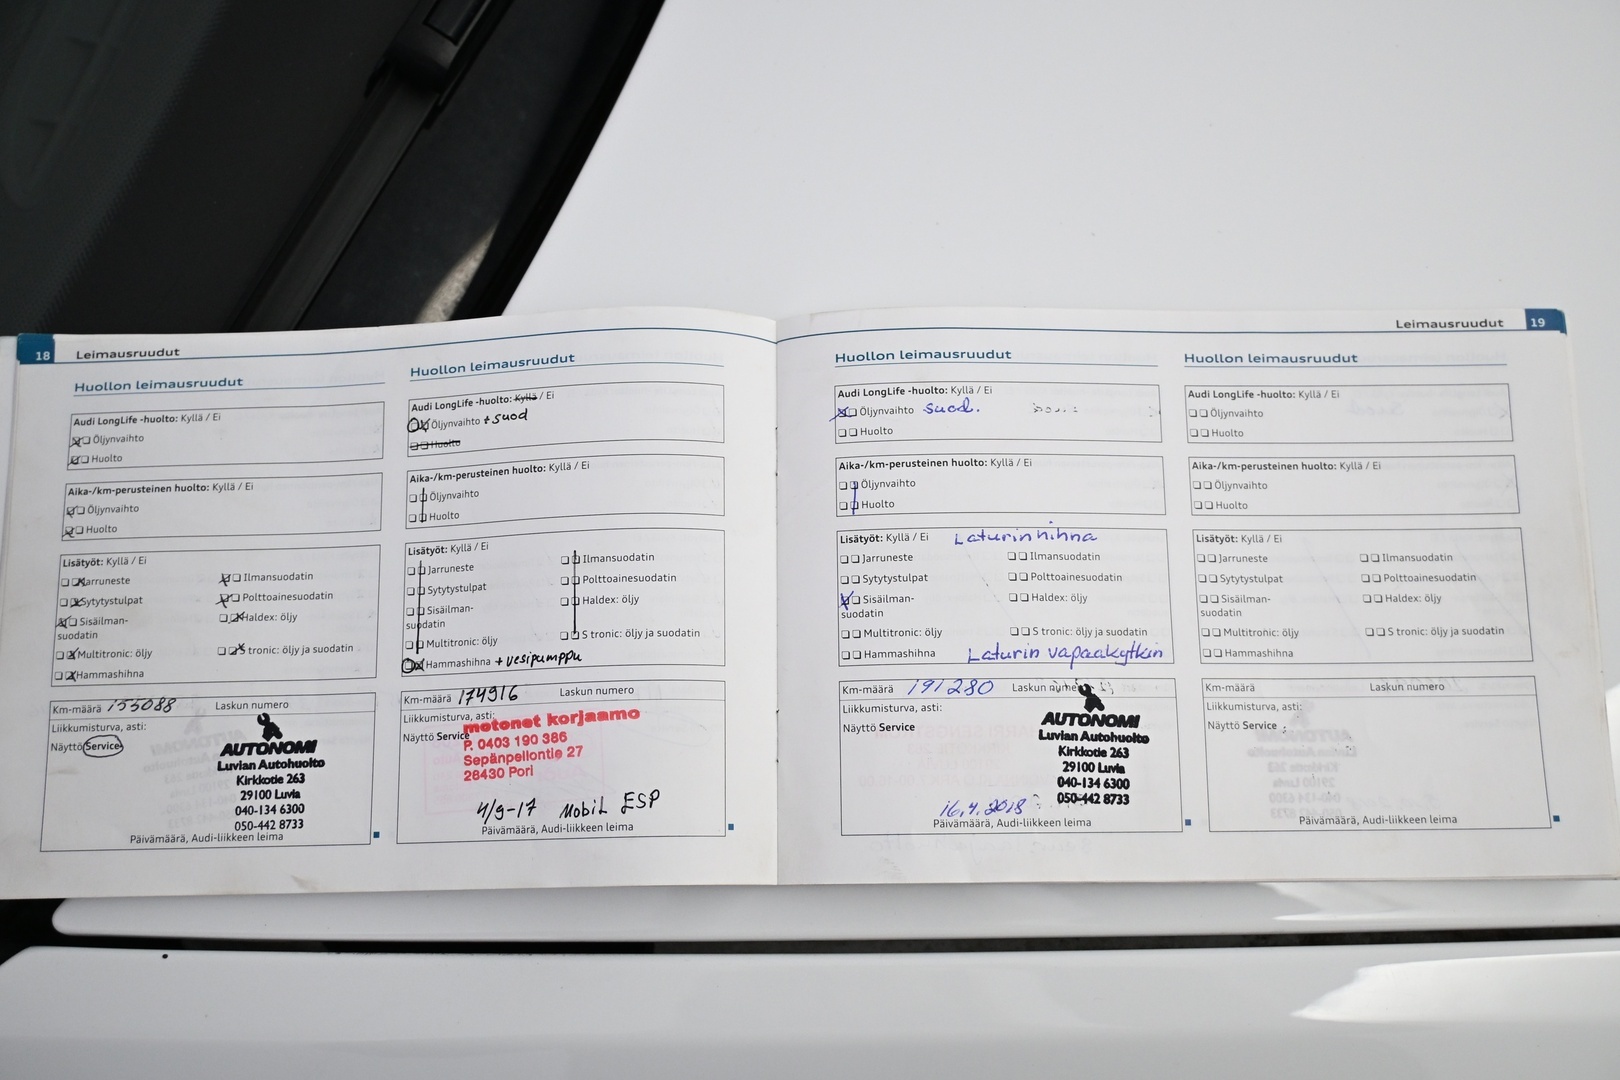 18 Leimausruudut
Huollon leimausruudut
Audi LongLife -huolto: Kyllä / Ei
Öljynvaihto
Huolto
Aika-/km-perusteinen huolto: Kyllä / Ei
Öljynvaihto
Huolto
Lisätyöt: Kyllä / Ei
Jarruneste
Ilmansuodatin
Sytytystulpat
Polttoainesuodatin
Sisäilman-
suodatin
Haldex: öljy
Multitronic: öljy
S tronic: öljy ja suodatin
Hammashihna
Km-määrä 155088 Laskun numero
Liikkumisturva, asti:
Näyttö Service
AUTONOMI
Luvian Autohuolto
Kirkkotie 263
29100 Luvia
040-134 6300
050-442 8733
Päivämäärä, Audi-liikkeen leima
Huollon leimausruudut
Audi LongLife -huolto: Kyllä / Ei
Öljynvaihto + suod
Huolto
Aika-/km-perusteinen huolto: Kyllä / Ei
Öljynvaihto
Huolto
Lisätyöt: Kyllä / Ei
Jarruneste
Ilmansuodatin
Sytytystulpat
Polttoainesuodatin
Sisäilman-
suodatin
Haldex: öljy
Multitronic: öljy
S tronic: öljy ja suodatin
Hammashihna + vesipumppu
Km-määrä 174916 Laskun numero
Liikkumisturva, asti:
Näyttö Service
motonet korjaamo
P. 0403 190 386
Sepänpellontie 27
28430 Pori
4/9-17 Mobil ESP
Päivämäärä, Audi-liikkeen leima
Leimausruudut 19
Huollon leimausruudut
Audi LongLife -huolto: Kyllä / Ei
Öljynvaihto suod.
Huolto
Aika-/km-perusteinen huolto: Kyllä / Ei
Öljynvaihto
Huolto
Lisätyöt: Kyllä / Ei Laturinhihna
Jarruneste
Ilmansuodatin
Sytytystulpat
Polttoainesuodatin
Sisäilman-
suodatin
Haldex: öljy
Multitronic: öljy
S tronic: öljy ja suodatin
Hammashihna Laturin vapaakytkin
Km-määrä 191280 Laskun numero
Liikkumisturva, asti:
Näyttö Service
AUTONOMI
Luvian Autohuolto
Kirkkotie 263
29100 Luvia
040-134 6300
050-442 8733
16.4.2018
Päivämäärä, Audi-liikkeen leima
Huollon leimausruudut
Audi LongLife -huolto: Kyllä / Ei
Öljynvaihto
Huolto
Aika-/km-perusteinen huolto: Kyllä / Ei
Öljynvaihto
Huolto
Lisätyöt: Kyllä / Ei
Jarruneste
Ilmansuodatin
Sytytystulpat
Polttoainesuodatin
Sisäilman-
suodatin
Haldex: öljy
Multitronic: öljy
S tronic: öljy ja suodatin
Hammashihna
Km-määrä Laskun numero
Liikkumisturva, asti:
Näyttö Service
Päivämäärä, Audi-liikkeen leima